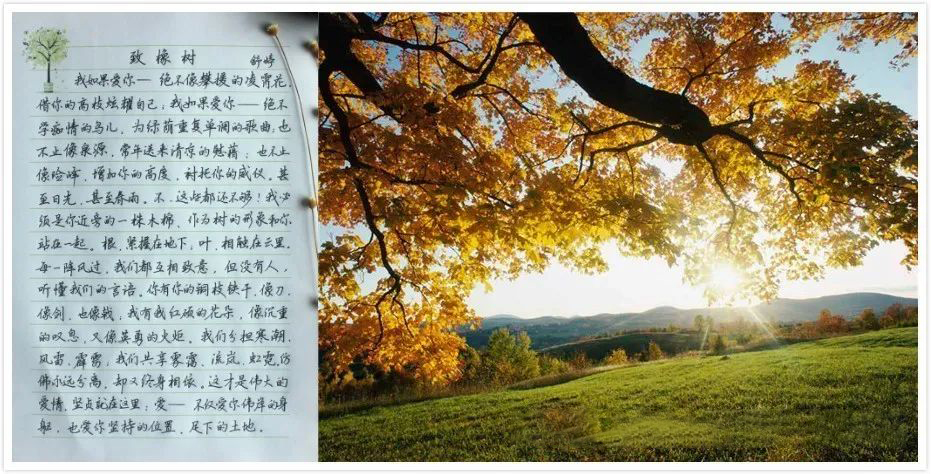 致橡树
舒婷
我如果爱你— 绝不像攀援的凌霄花,
借你的高枝炫耀自己；我如果爱你— 绝不
学痴情的鸟儿、为绿荫重复单调的歌曲；也
不止像泉源、常年送来清凉的慰藉；也不止
像险峰、增加你的高度、衬托你的威仪。甚
至日光、甚至春雨。不、这些都还不够！我必
须是你近旁的一株木棉、作为树的形象和你
站在一起。根、紧握在地下；叶、相触在云里。
每一阵风过、我们都互相致意，但没有人，
听懂我们的言语。你有你的铜枝铁干、像刀、
像剑、也像戟，我有我红硕的花朵、像沉重
的叹息、又像英勇的火炬。我们分担寒潮、
风雷、霹雳；我们共享雾霭、流岚、虹霓，仿
佛永远分离、却又终身相依。这才是伟大的
爱情、坚贞就在这里：爱— 不仅爱你伟岸的身
躯、也爱你坚持的位置、足下的土地。